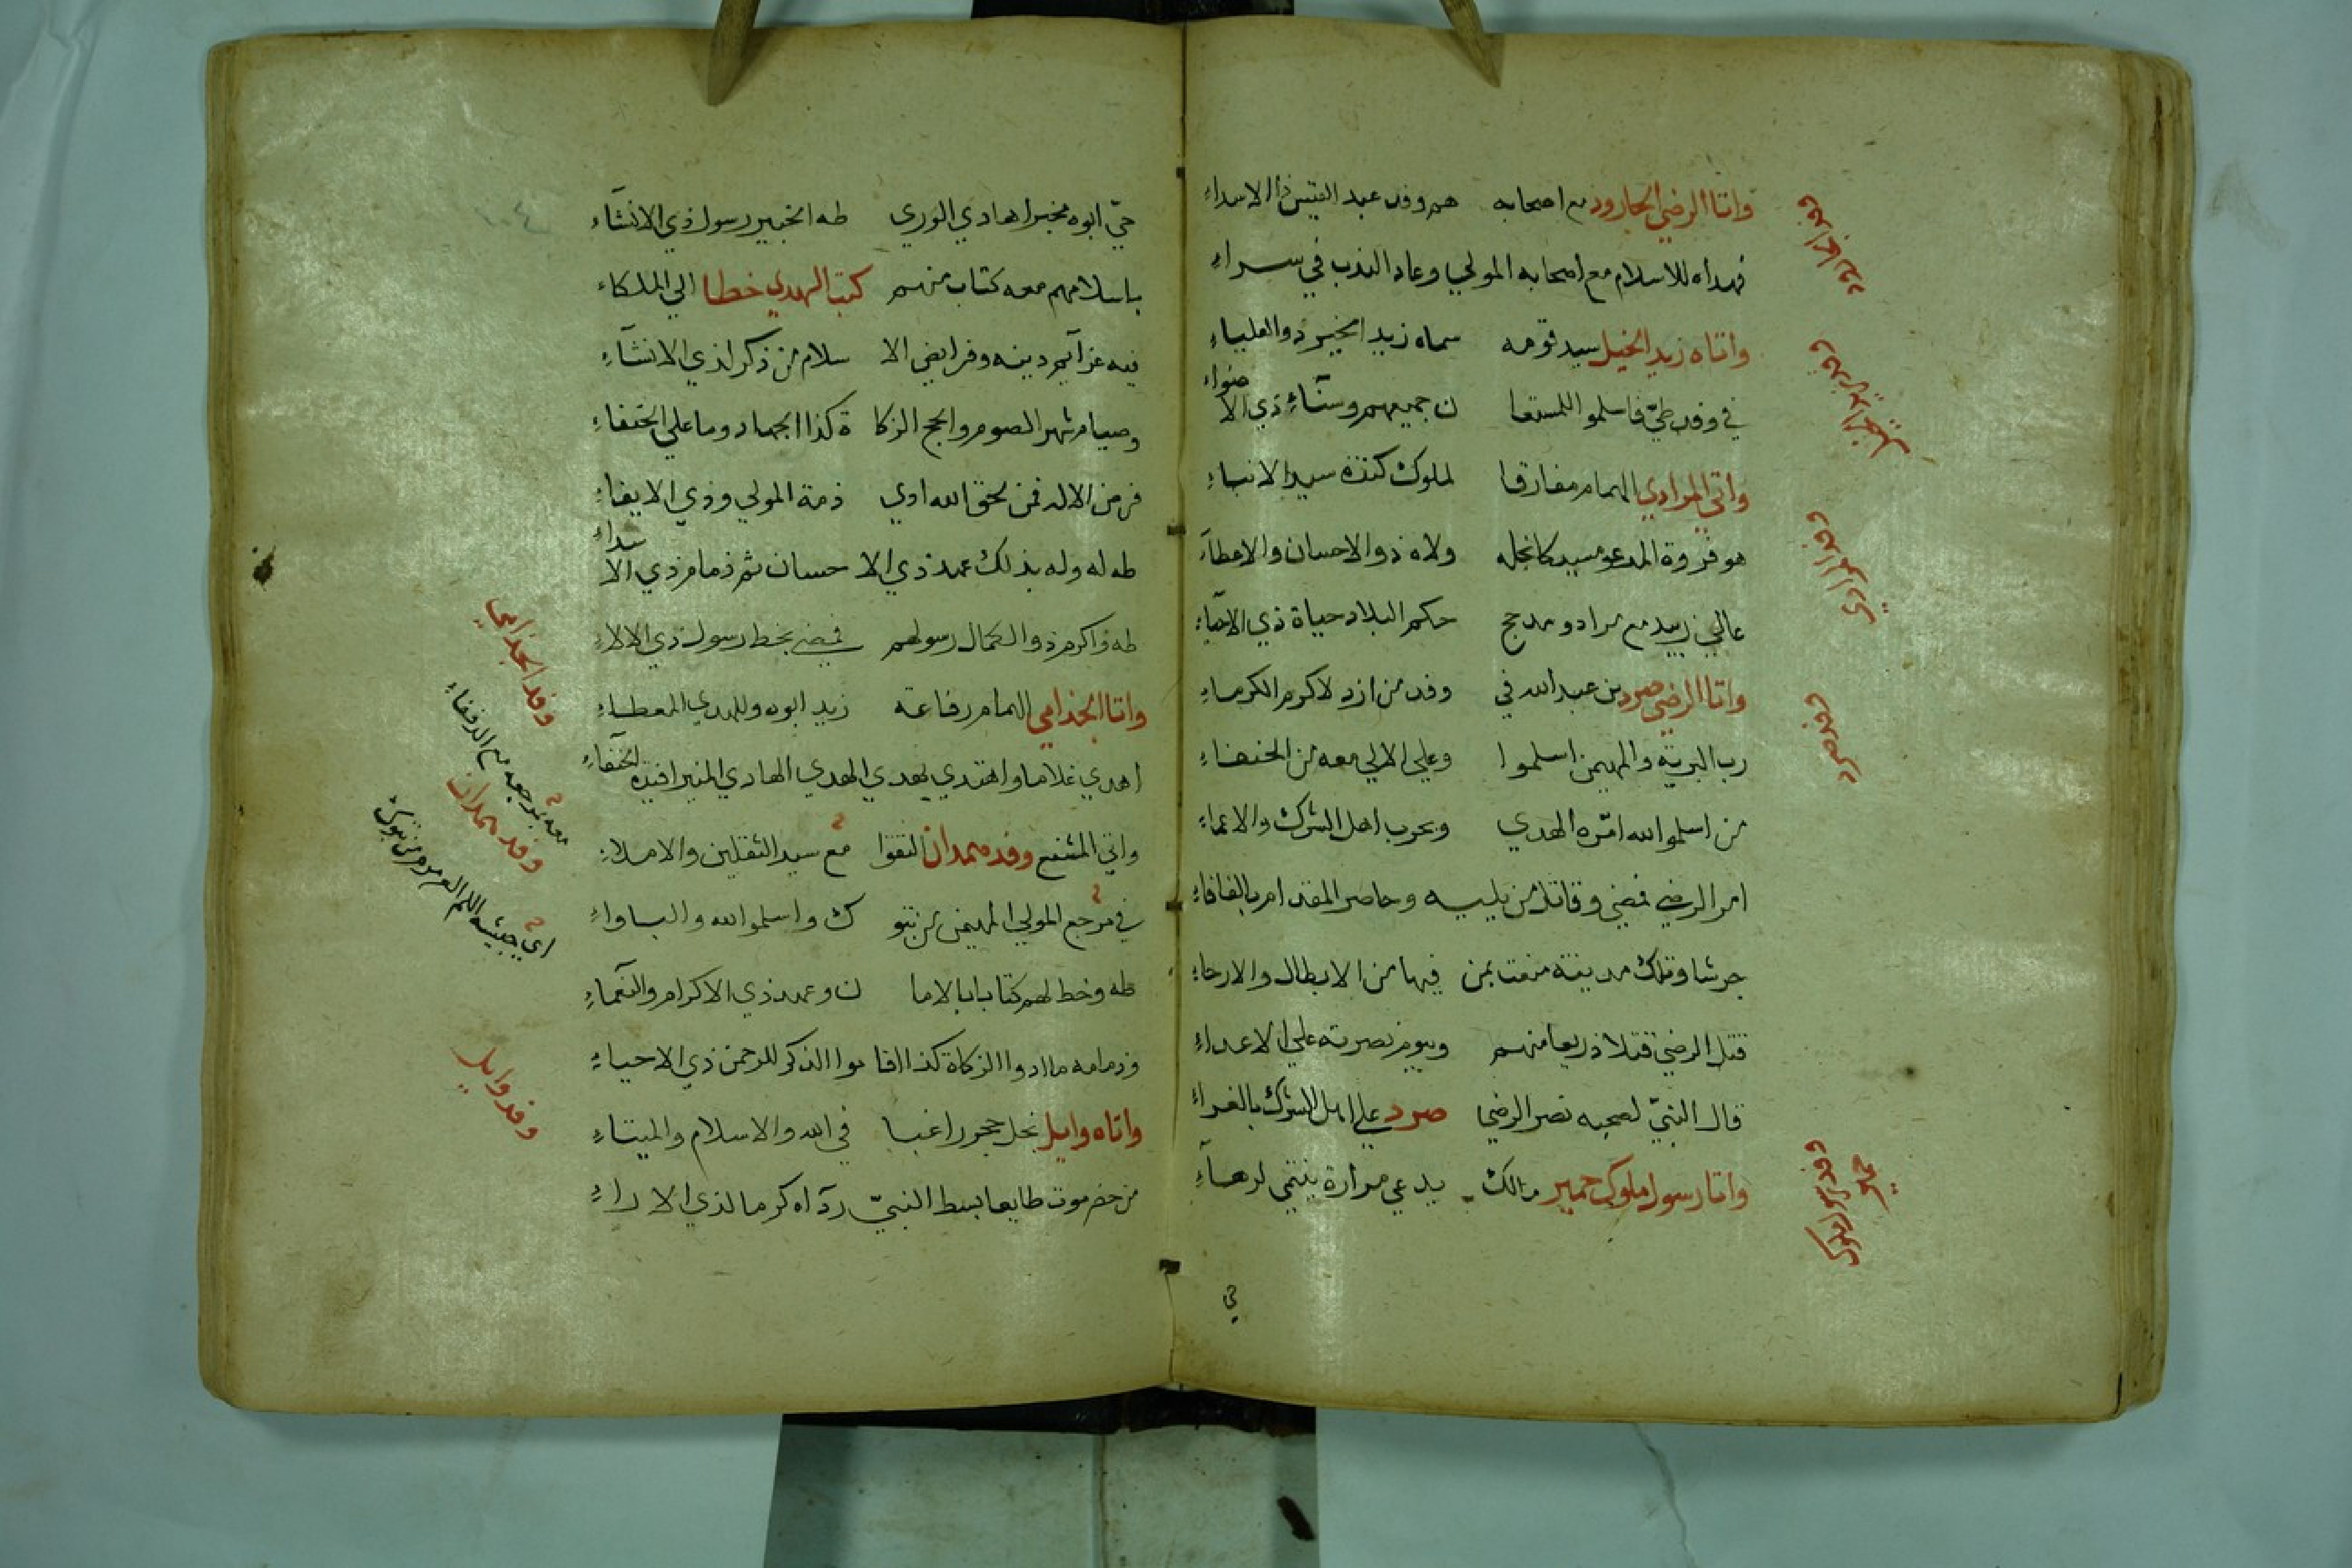 واتا الرضي الجارود مع اصحابه هم وفد عبد القيس ذا الاسداء
فهداه للاسلام مع اصحابه المولي وعاد الندب في سراء
واتاه زيد الخيل سيد قومه سماه زيد الخير ذو العلياء
في وفد طيّ فاسلموا للمستعا ن جميعهم وسناء ذي الاضواء
واتي المرادي الهمام مفارقا لملوك كندة سيد الانباء
هو فروة المدعو مسيكا نجله ولاه ذو الاحسان والاعطآء
عالي زبيد مع مراد ومدحج حكم البلاد حياة ذي الايتاء
واتا الرضي صرد بن عبد الله في وفد من ازد لاكرم الكرماء
رب البرية والمهيمن اسلموا وعلي الالي معه من الحنفاء
من اسلموا لله امّره الهدي وبحرب اهل الشرك والاعماء
امر الرضي فمضي وقاتل من يليه وحاصر المقدام بالفافاء
جرشا وتلك مدينة منعت بمن فيها من الابطال والارحاء
قتل الرضي قتلا ذريعا منهم وبيوم نصرته علي الاعداء
قال النبيّ لصحبه نصر الرضي صرد علي اهل الشرك بالغراء
واتا رسول ملوك حمير مالك يدعي مرارة ينتمي لرهآء
وفد الجارود
وفد زيد الخيل
وفد المرادي
وفد صرد
وفد رسول ملوك حمير
حيّ ابوه مخبرا هادي الوري طه الخبير رسول ذي الانشآء
باسلامهم معه كتاب منهم كتب الهدي خطا الي الملكاء
فيه عزآيم دينه وفرايض الا سلام من ذكر لذي الانشآء
وصيام شهر الصوم والحج الزكا ة كذا الجهاد وما علي الحنفاء
فرض من الاله فمن لحق الله ادي ذمة المولي وذي الايفاء
طه له وله بذلك عهد ذي الا حسان ثم ذمام ذي الاسداء
طه واكرم ذو الكمال رسولهم فمضي بخط رسول ذي الالاء
واتا الجذامي الهمام رفاعة زيد ابوه وللهدي المعطاء
اهدي غلاما واهتدي بهدي الهدي الهادي المنير افيدة الحنفآء
واتي المشفع وفد همدان التقوا مع سيد الثقلين والاملاء
في مرجع المولي المهيمن من تبو ك واسلموا لله والباواء
طه وخط لهم كتابا بالاما ن وعهد ذي الاكرام والنعمآء
وذمامه ما ادوا الزكاة كذا اقا موا الذكر للرحمن ذي الاحياء
واتاه وايل نجل حجر راغبا في الله والاسلام والميتاء
من حضرموت طايعا بسط النبيّ ردآه كرما لذي الاراء
وفد الجذامي
معه مرجعه مع الرفقاء
وفد همدان
اي جيشه العرمرم من تبوك
وفد وايل